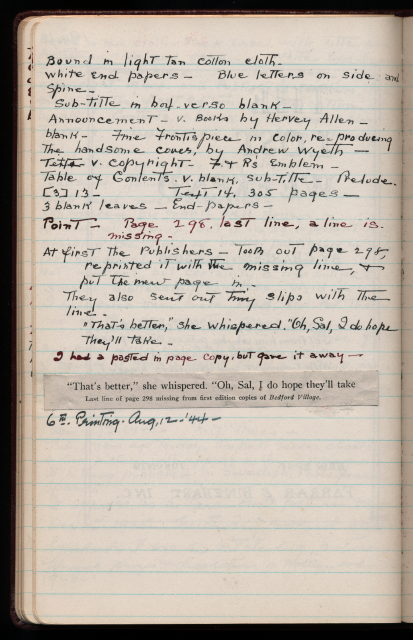 Bound in light tan cotton cloth-
white End papers - Blue letters on side and
Spine-
Sub-title in box-verso blank-
Announcement - v. Books by Hervey Allen -
blank- Fine Frontispiece in color, re=producing
the handsome cover, by Andrew Wyeth -
v. copyright - F & R's Emblem-
Table of Contents. v. blank, sub-title - Prelude.
[3] 13- Text 14, 305 pages-
3 blank leaves - End-papers-
Point - Page 298, last line, a line is
missing-
At first the Publishers - Took out page 298,
reprinted it with the missing line, &
put the new page in-
They also sent out tiny slips with the
line-
"That's better," she whispered. "Oh, Sal, I do hope
they'll take-
I had a pasted in page copy, but gave it away-
"That's better," she whispered. "Oh, Sal, I do hope they'll take
Last line of page 298 missing from first edition copies of Bedford Village.
6th Printing. Aug, 12-'44-